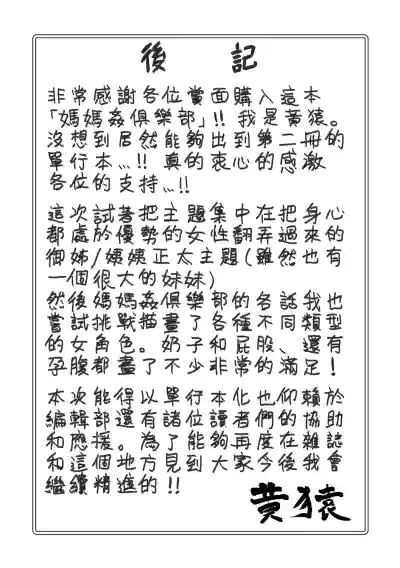 後記
非常感謝各位賞面購入這本
「媽媽姦俱樂部」!! 我是黃猿。
沒想到居然能夠出到第二冊的
單行本…!! 真的衷心的感激
各位的支持…!!
這次試著把主題集中在把身心
都處於優勢的女性翻弄過來的
御姊/姨姨正太主題(雖然也有
一個很大的妹妹)
然後媽媽姦俱樂部的各話我也
嘗試挑戰描畫了各種不同類型
的女角色。奶子和屁股、還有
孕腹都畫了不少非常的滿足!
本次能得以單行本化也仰賴於
編輯部還有諸位讀者們的協助
和應援。為了能夠再度在雜誌
和這個地方見到大家今後我會
繼續精進的!!
黄猿